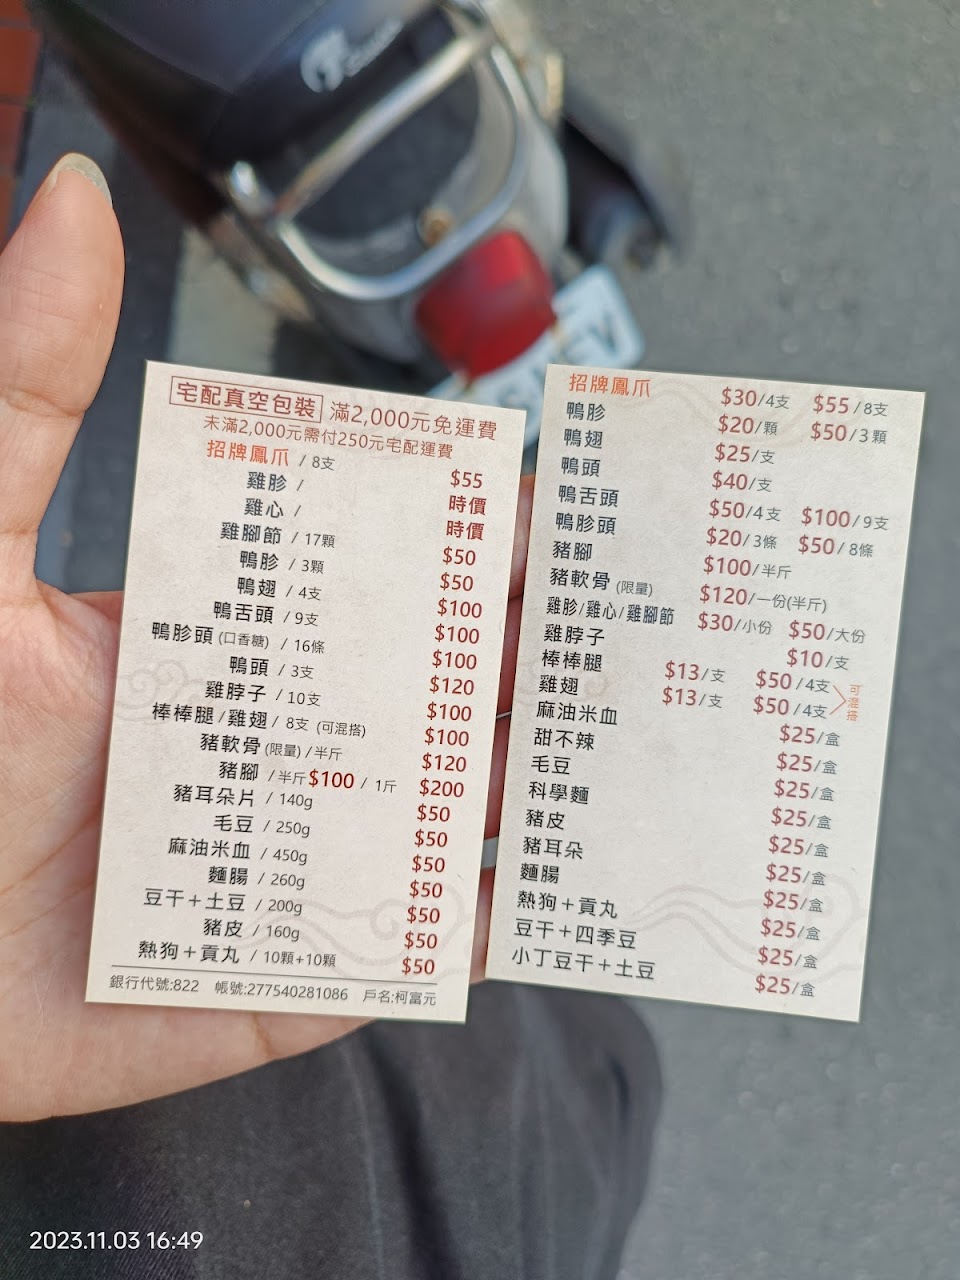 宅配真空包裝 滿2,000元免運費
未滿2,000元需付250元宅配運費
招牌鳳爪 / 8支 $55
雞胗 / 時價
雞心 / 時價
雞腳節 / 17顆 $50
鴨胗 / 3顆 $50
鴨翅 / 4支 $100
鴨舌頭 / 9支 $100
鴨胗頭(口香糖) / 16條 $100
鴨頭 / 3支 $120
雞脖子 / 10支 $100
棒棒腿/雞翅 / 8支 (可混搭) $100
豬軟骨(限量) / 半斤 $120
豬腳 / 半斤$100 / 1斤 $200
豬耳朵片 / 140g $50
毛豆 / 250g $50
麻油米血 / 450g $50
麵腸 / 260g $50
豆干+土豆 / 200g $50
豬皮 / 160g $50
熱狗+貢丸 / 10顆+10顆 $50
銀行代號:822 帳號:277540281086 戶名:柯富元
招牌鳳爪 $30/4支 $55/8支
鴨胗 $20/顆 $50/3顆
鴨翅 $25/支
鴨頭 $40/支
鴨舌頭 $50/4支 $100/9支
鴨胗頭 $20/3條 $50/8條
豬腳 $100/半斤
豬軟骨(限量) $120/一份(半斤)
雞胗/雞心/雞腳節 $30/小份 $50/大份
雞脖子 $10/支
棒棒腿 $13/支 $50/4支
雞翅 $13/支 $50/4支
可混搭
麻油米血 $25/盒
甜不辣 $25/盒
毛豆 $25/盒
科學麵 $25/盒
豬皮 $25/盒
豬耳朵 $25/盒
麵腸 $25/盒
熱狗+貢丸 $25/盒
豆干+四季豆 $25/盒
小丁豆干+土豆 $25/盒
2023.11.03 16:49